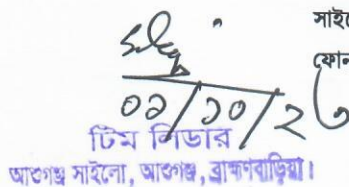 সাইলো
ফোন
০২/১০/২
টিম লিডার
আশুগঞ্জ সাইলো, আশুগঞ্জ, ব্রাহ্মণবাড়িয়া।